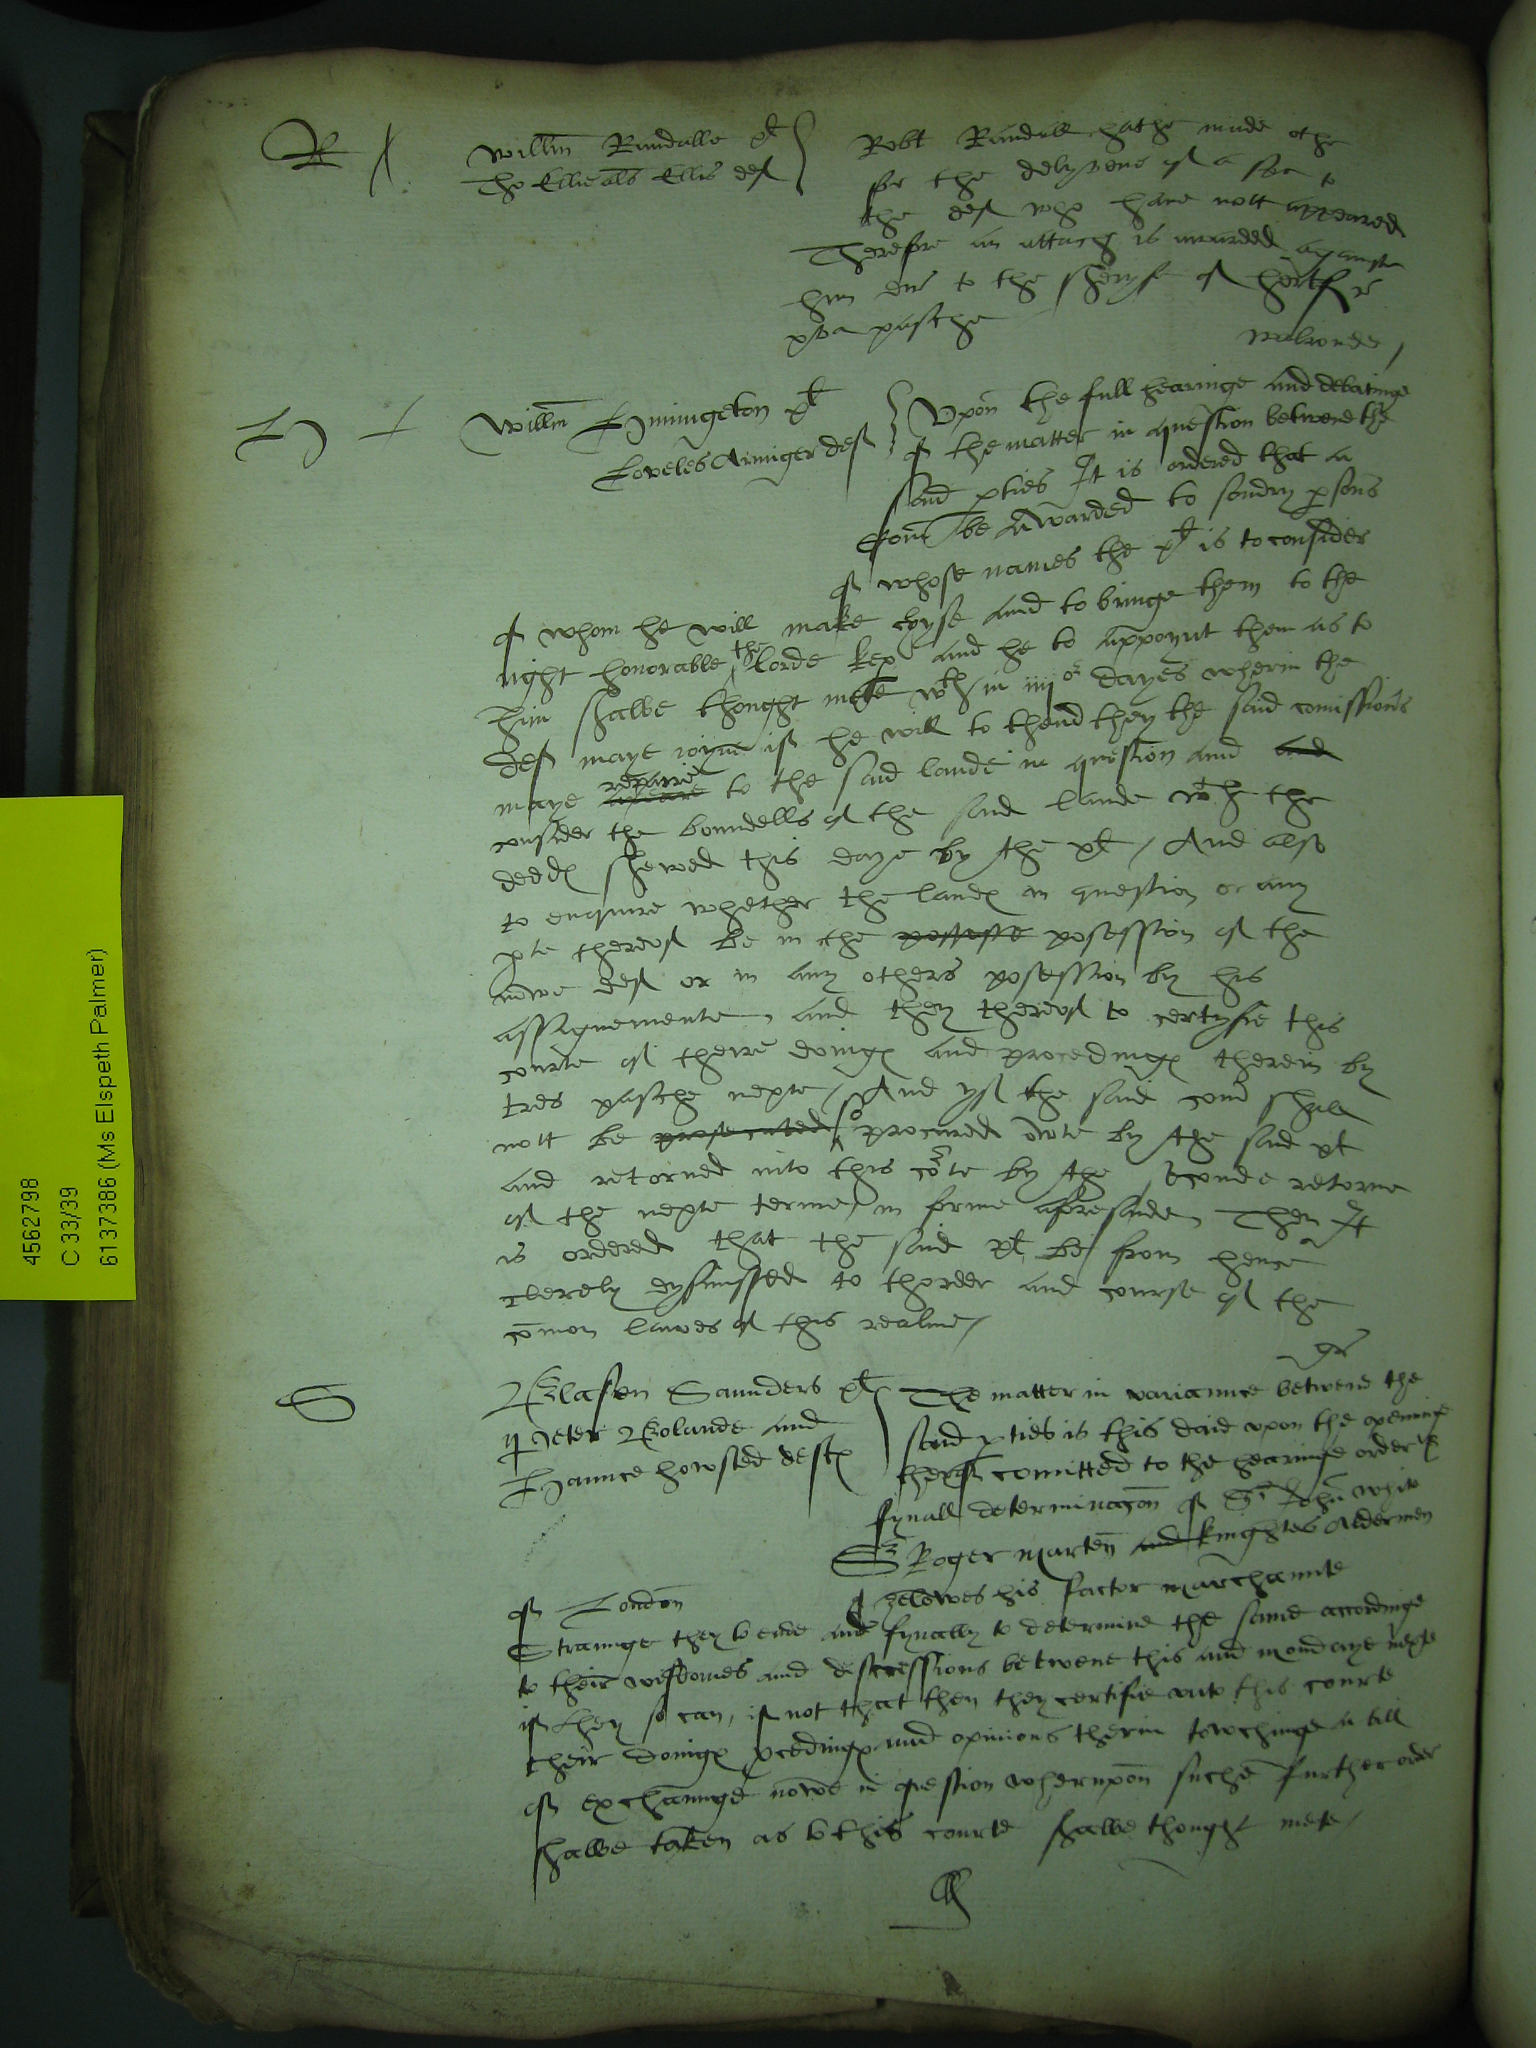 R Willm Rundalle plt
Tho Ellie als Ellis def
Robt Rundall hathe made othe
for the delyverie of a to
the def who have nott appeared
Therefore an attach is awarded agaynste
him dir to the Sheryfe of hertf r
xva pasche
Walronde
H Willm Huningeton plt
Loveles Armiger def
Upon the full hearinge and debatinge
of the matter in question betwene the
said pties It is ordered that a
Com be awarded to sondry psons
of whose names the plt is to consider
of whom he will make choyse and to bringe them to the
right honorable the lorde kep and he to appoynt them as to
him shalbe thought mete wth in iiijor dayes wherin the
def maye ioyne if he will to thend they the said comissions
maye appeare repaire to the said lande in question and and
consider the boundells of the said lande wth the
deeds shewed this daye by the plt / And also
to enquire whether the lands in question or any
pte therof be in the possesse posession of the
nowe def or in any others posession by his
assignemente, and they thereof to certyfie this
courte of theire doings and procedings therein by
tres pasche nexte / And yf the said com shall
nott be prosecuted so procured owte by the said plt
and retorned into this corte by the seconde retorne
of the nexte terme in forme aforesaide, Then It
is ordered that the said plt be from hence
clerely dysmissed to thorder and course of the
comon lawes of this realme /
gr
S Blasen Saunders plt
Peter Rolande and
Haunce howsted defts
The matter in variaunce betwene the
said pties is this daie upon the openinge
therof comitted to the hearinge order &
fynall determinacon of Sr John White
Sr Roger Marten and knightes Aldermen
of London & Jelowes his factor marchaunte
Straunge they to ende and fynally to determine the same accordinge
to their wisdomes and discressions betwene this and mondaye nexte
if they so can, if not that then they certifie unto this courte
their doings pcedings and opinions therin towchinge a bill
of exchaunge nowe in question wherupon suche further order
shalbe taken as to this courte shalbe thought mete /
4562798
C 33/39
6137386 (Ms Elspeth Palmer)